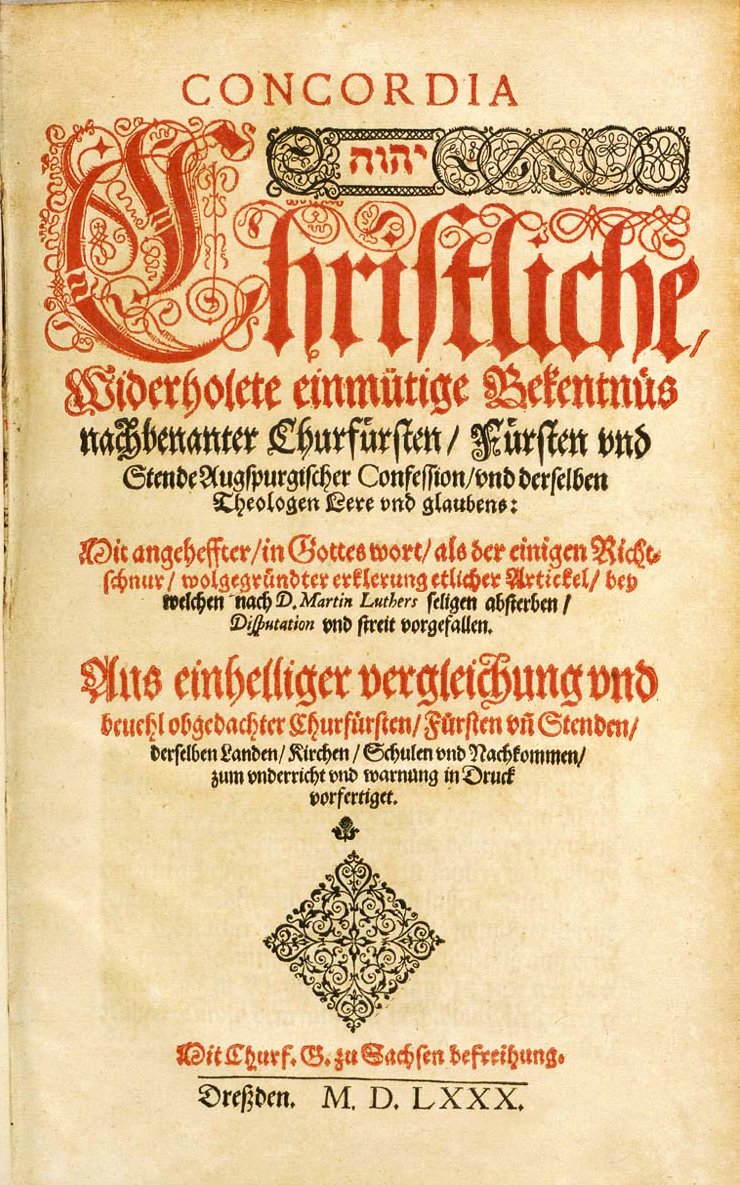 CONCORDIA
יהוה
Christliche,
Widerholete einmütige Bekentnüs
nachbenanter Churfürsten / Fürsten vnd
Stende Augspurgischer Confession / vnd derselben
Theologen Lere vnd glaubens:
Mit angeheffter / in Gottes wort / als der einigen Richt-
schnur / wolgegründter erklerung etlicher Artickel / bey
welchen nach D. Martin Luthers seligen absterben /
Disputation vnd streit vorgefallen.
Aus einhelliger vergleichung vnd
beuehl obgedachter Churfürsten / Fürsten vn̄ Stenden /
derselben Landen / Kirchen / Schulen vnd Nachkommen /
zum vnderricht vnd warnung in Druck
vorfertiget.
Mit Churf. G. zu Sachsen befreihung.
Dreßden. M. D. LXXX.